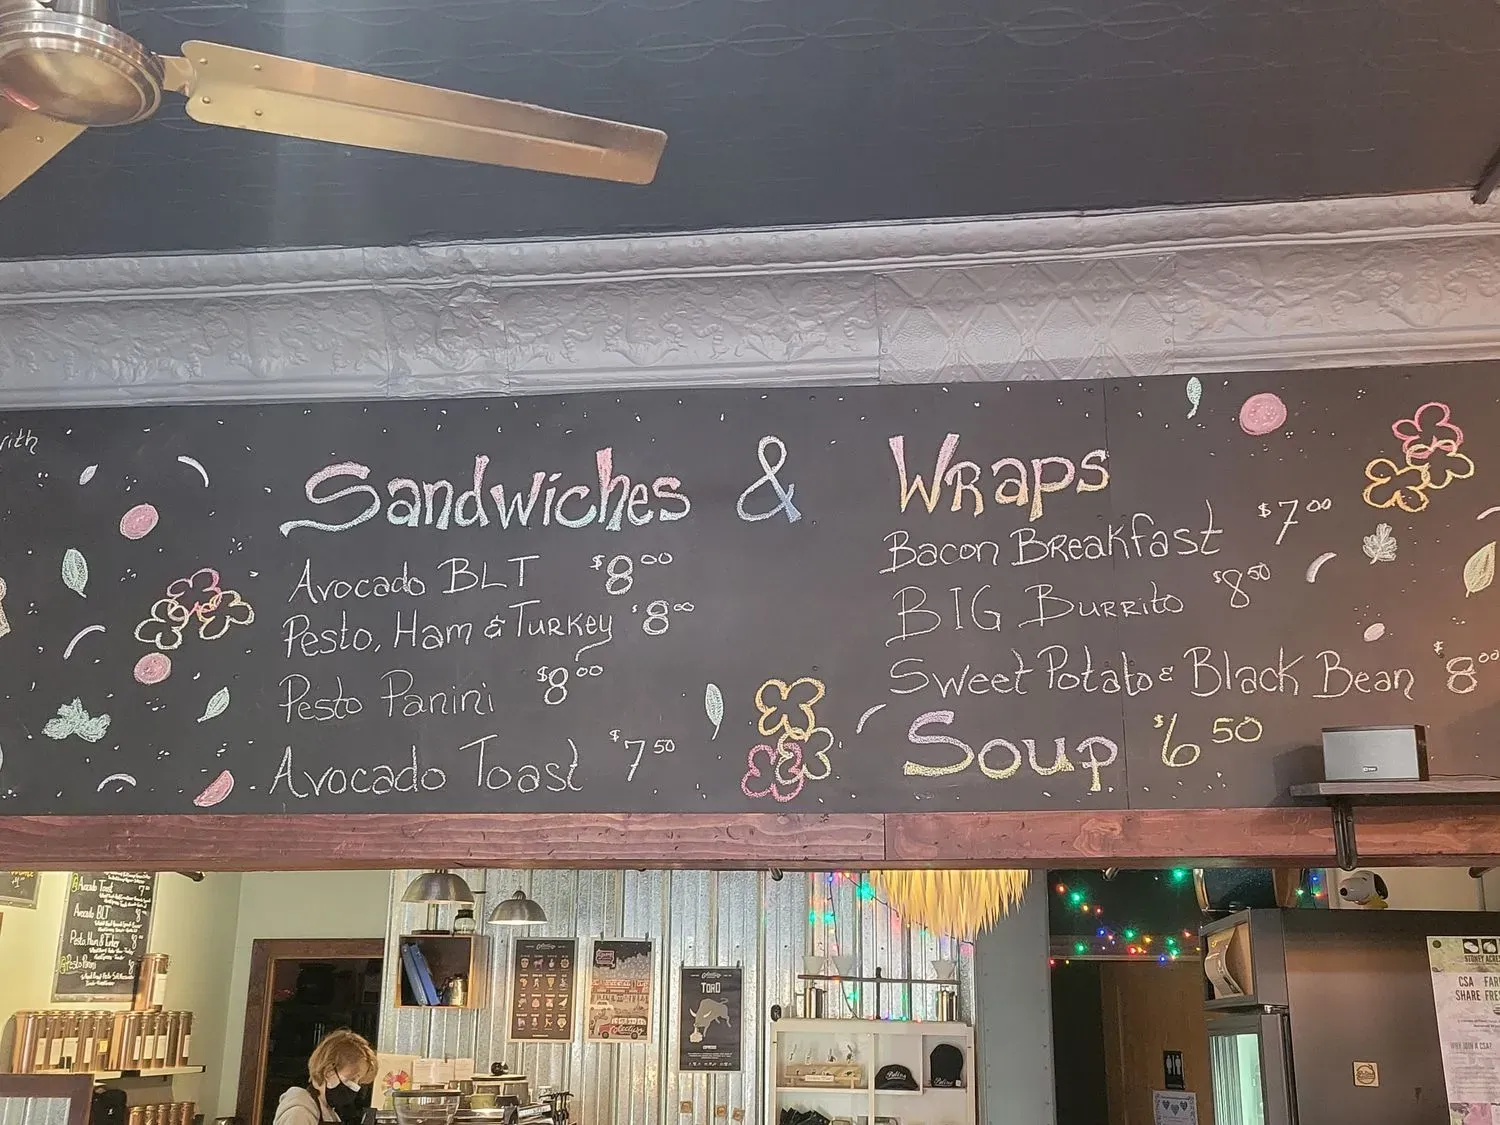 with
Sandwiches & Wraps
Avocado BLT $8.00
Pesto, Ham & Turkey $8.00
Pesto Panini $8.00
Avocado Toast $7.50
Bacon Breakfast $7.00
BIG Burrito $8.50
Sweet Potato & Black Bean $8.00
Soup $6.50
Avocado Toast
Avocado BLT
Pesto, Ham & Turkey
Pesto Panini
TORO
ESPRESSO
STONEY ACRES
CSA FAR
SHARE FRE
WHY JOIN A CSA?